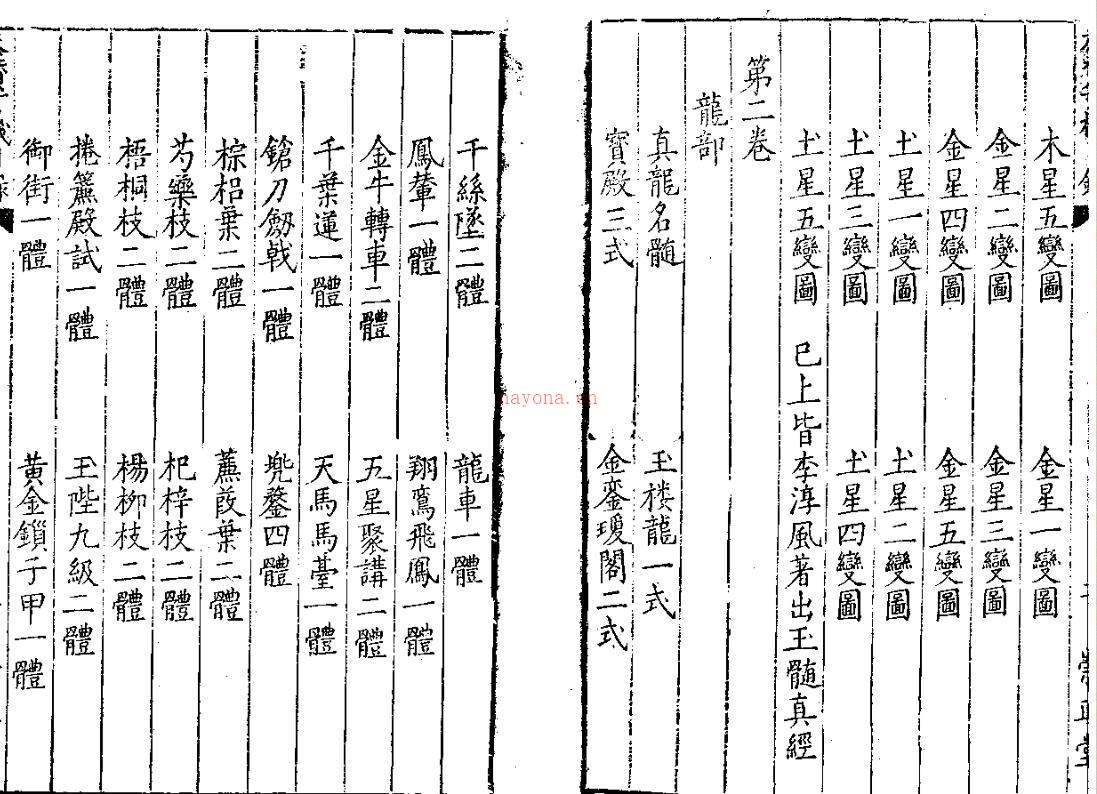 木星五變圖　金星一變圖
金星二變圖　金星三變圖
金星四變圖　金星五變圖
土星一變圖　土星二變圖
土星三變圖　土星四變圖
土星五變圖　已上皆李淳風著出玉髓真經
第二卷
龍部
真龍名髓　玉楼龍一式
寳殿三式　金鑾瓊閣二式
千絲墜二體　龍車一體
鳳輦一體　翔鸞飛鳳一體
金牛轉車二體　五星聚講二體
千葉蓮一體　天馬馬臺一體
鎗刀劔戟一體　兠鍪四體
棕梠葉二體　蕉葭葉二體
芍藥枝二體　杞梓枝二體
梧桐枝二體　楊柳枝二體
捲簾殿試一體　玉陛九級二體
御街一體　黃金鎖子甲一體
崇正堂
nayona.cn